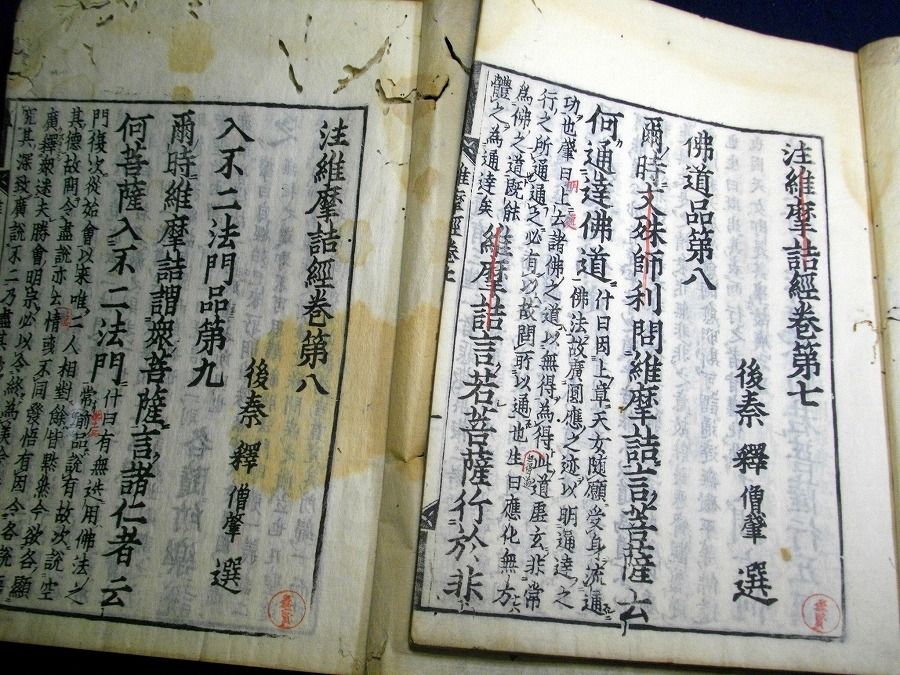 注維摩詰經卷第七
後秦 釋 僧肇 選
佛道品第八
爾時文殊師利問維摩詰言菩薩云
何通達佛道
什曰因上章天女隨願受身流通
佛法故廣圓應之迹以明通達之
功也肇曰上云諸佛之道以無得為得此道虛玄非常
行之所通通之必有以故問所以通也生曰應化無方
為佛之道既能
體之為通達矣
維摩詰言若菩薩行於非
維摩經卷七
注維摩詰經卷第八
後秦 釋 僧肇 選
入不二法門品第九
爾時維摩詰謂眾菩薩言諸仁者云
何菩薩入不二法門
什曰有無迭用佛法之
常前品說有故次說空
門復次從始會以來唯二人相對餘皆默然今欲各顯
其德故問令盡說亦云情惑不同發悟有因令各說
廣釋眾迷夫勝會明宗必以令終為美
究其深致廣說不二乃盡其